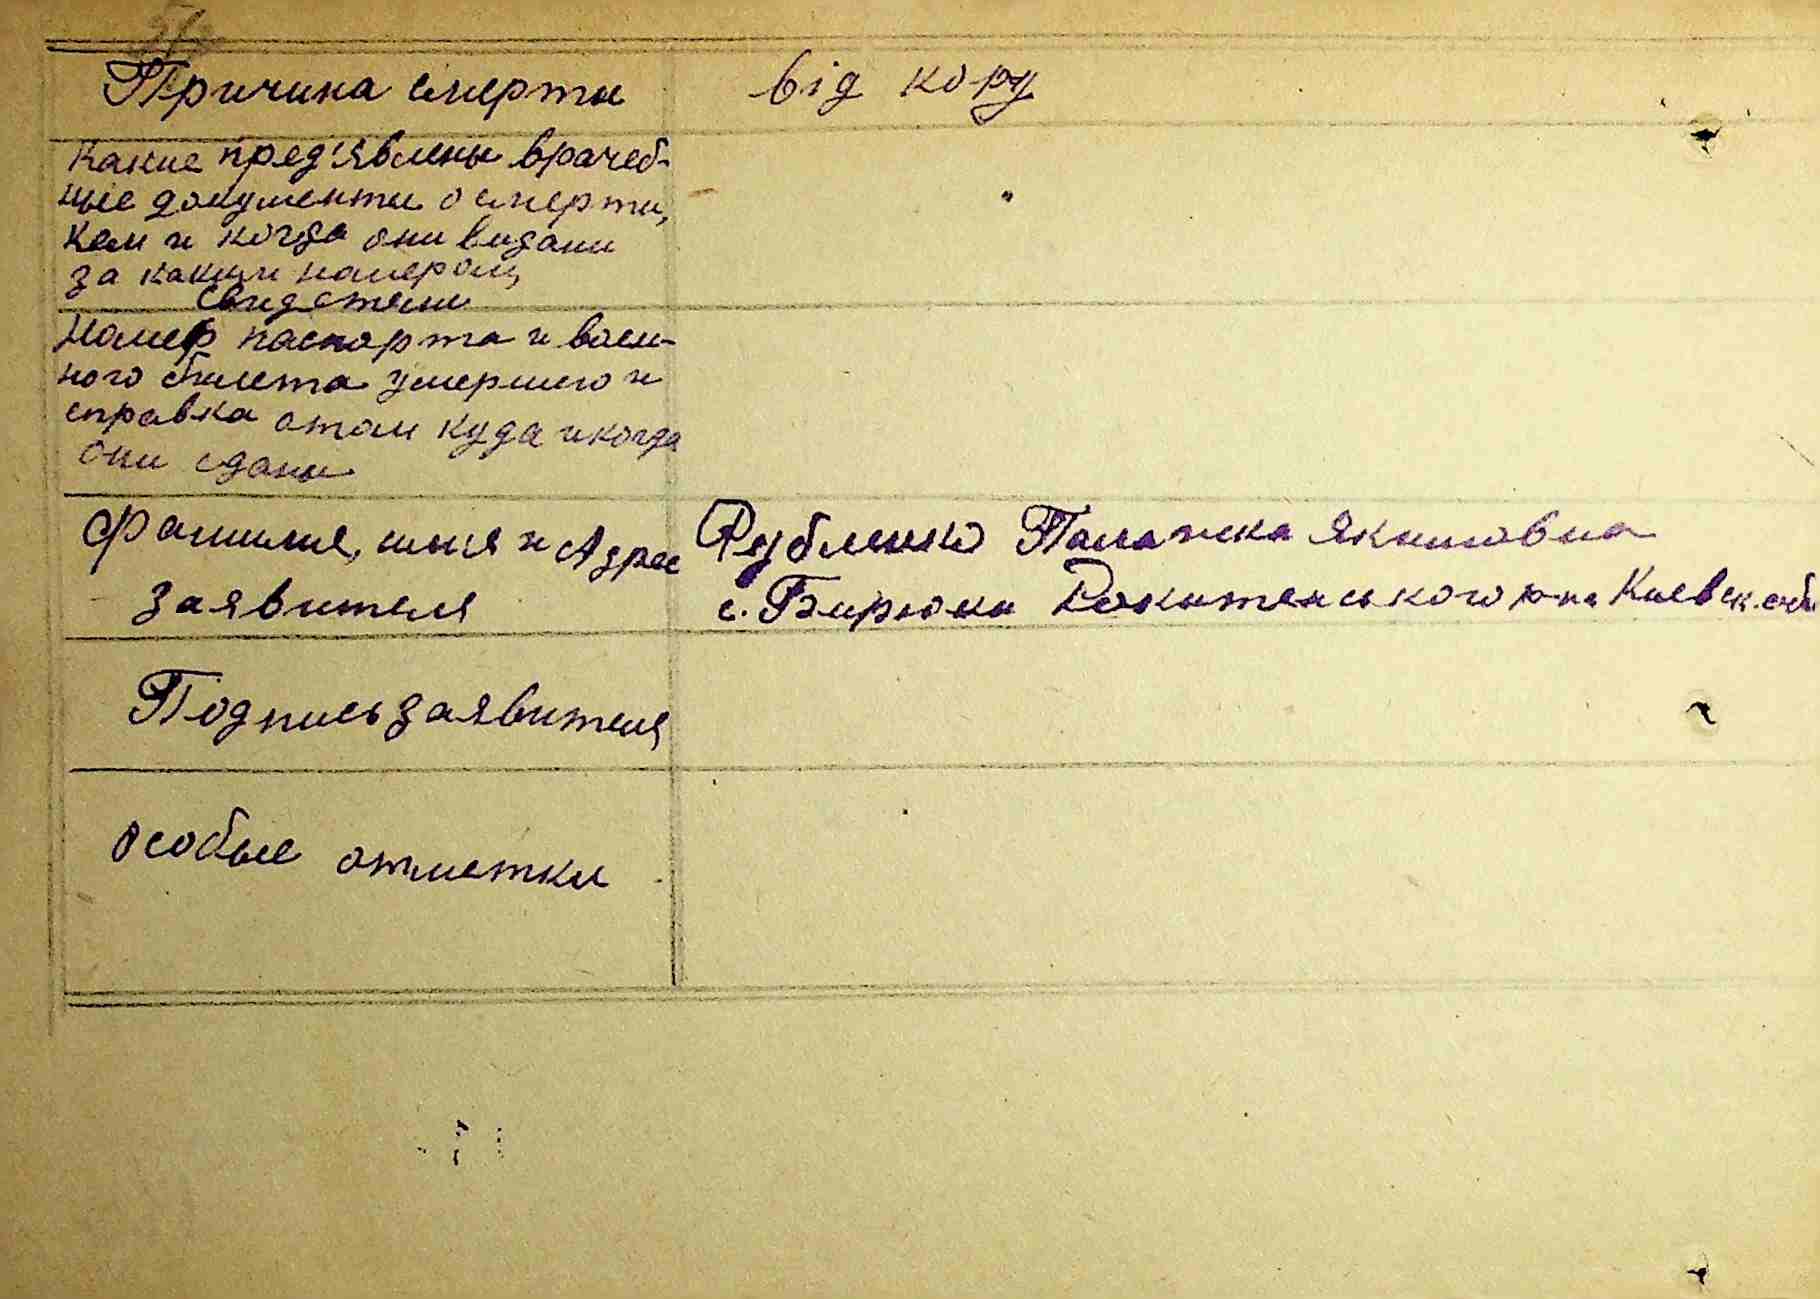 Причина смерти
від кору
Какие пред'явлены врачеб-
ные документи о смерти,
кем и когда они видани
за каким номером,
Свидетели
Номер паспорта и воен-
ного билета умершего и
справка отом куда и когда
они сдани
Фамилия, имя и Адрес
заявителя
Рубленко Палажка Якимовна
с. Бирюки Рокитенського р-на Киевск. обл
Подпись заявителя
Особые отметки